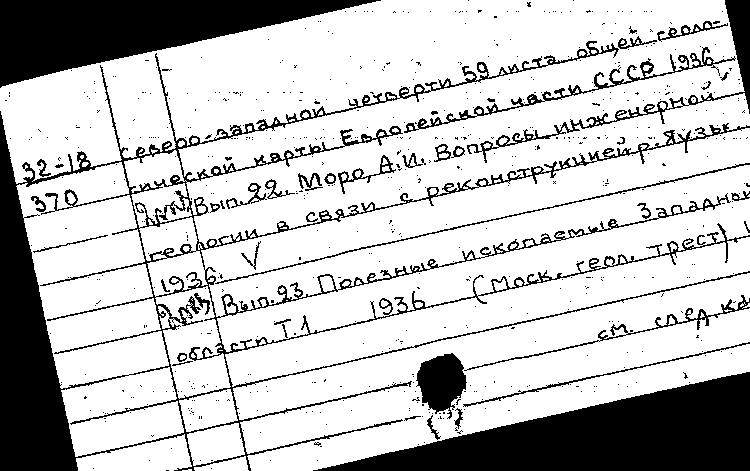 северо-западной четверти 59 листа общей геоло-
32-18
гической карты Европейской части СССР 1936
370
Вып. 22. Моро, А.И. Вопросы инженерной
геологии в связи с реконструкцией р. Яузы.
1936.
Вып. 23. Полезные ископаемые Западной
области. Т.1. 1936 (Моск. геол. трест).
см. след. ка